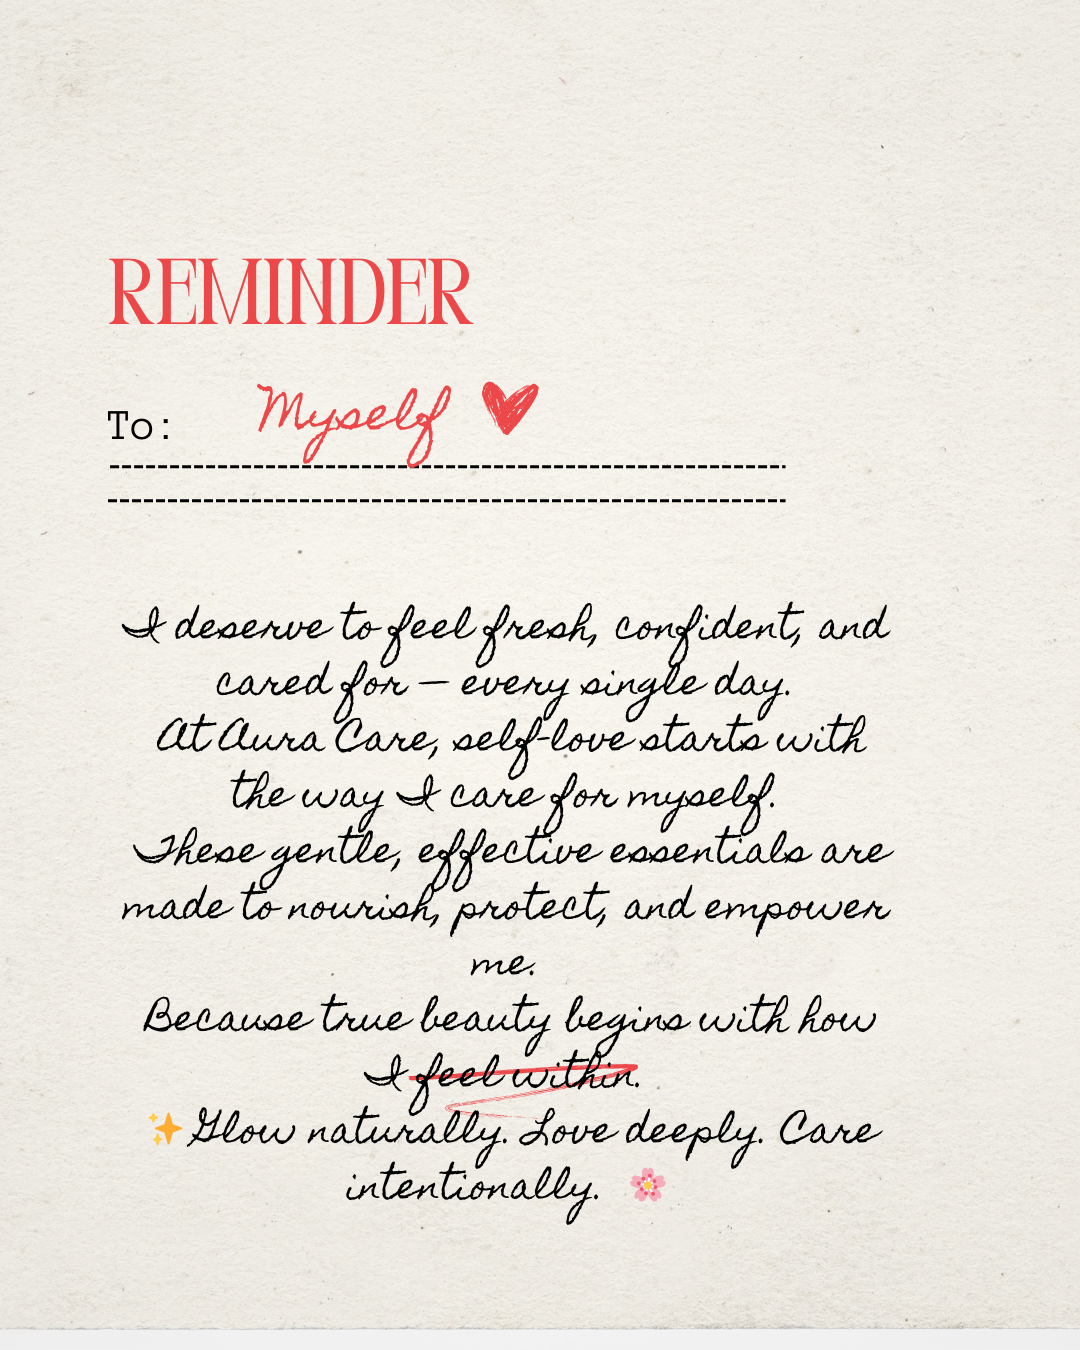 REMINDER
To: Myself
I deserve to feel fresh, confident, and
cared for – every single day.
At Aura Care, self-love starts with
the way I care for myself.
These gentle, effective essentials are
made to nourish, protect, and empower
me.
Because true beauty begins with how
I feel within.
✨Glow naturally. Love deeply. Care
intentionally. 🌸